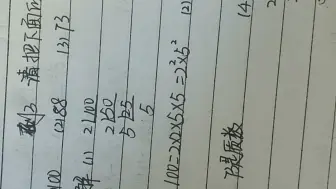 例3 请把下面
100 (2)88 (3)73
解 (1) 2|100
2|50
5|25
5
100=2×2×5×5=2²×5²
(2)
是质数
(4